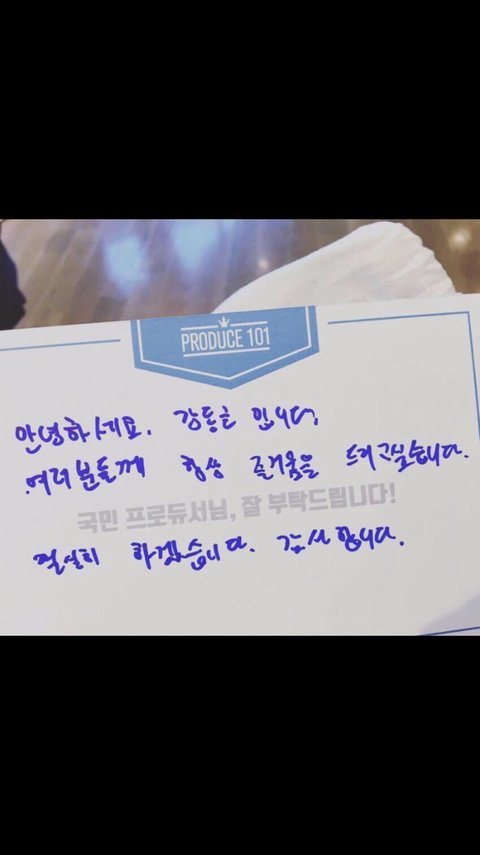 PRODUCE 101
안녕하세요. 강동호 입니다.
여러분들께 항상 즐거움을 드리고싶습니다.
국민 프로듀서님, 잘 부탁드립니다!
열심히 하겠습니다. 감사합니다.